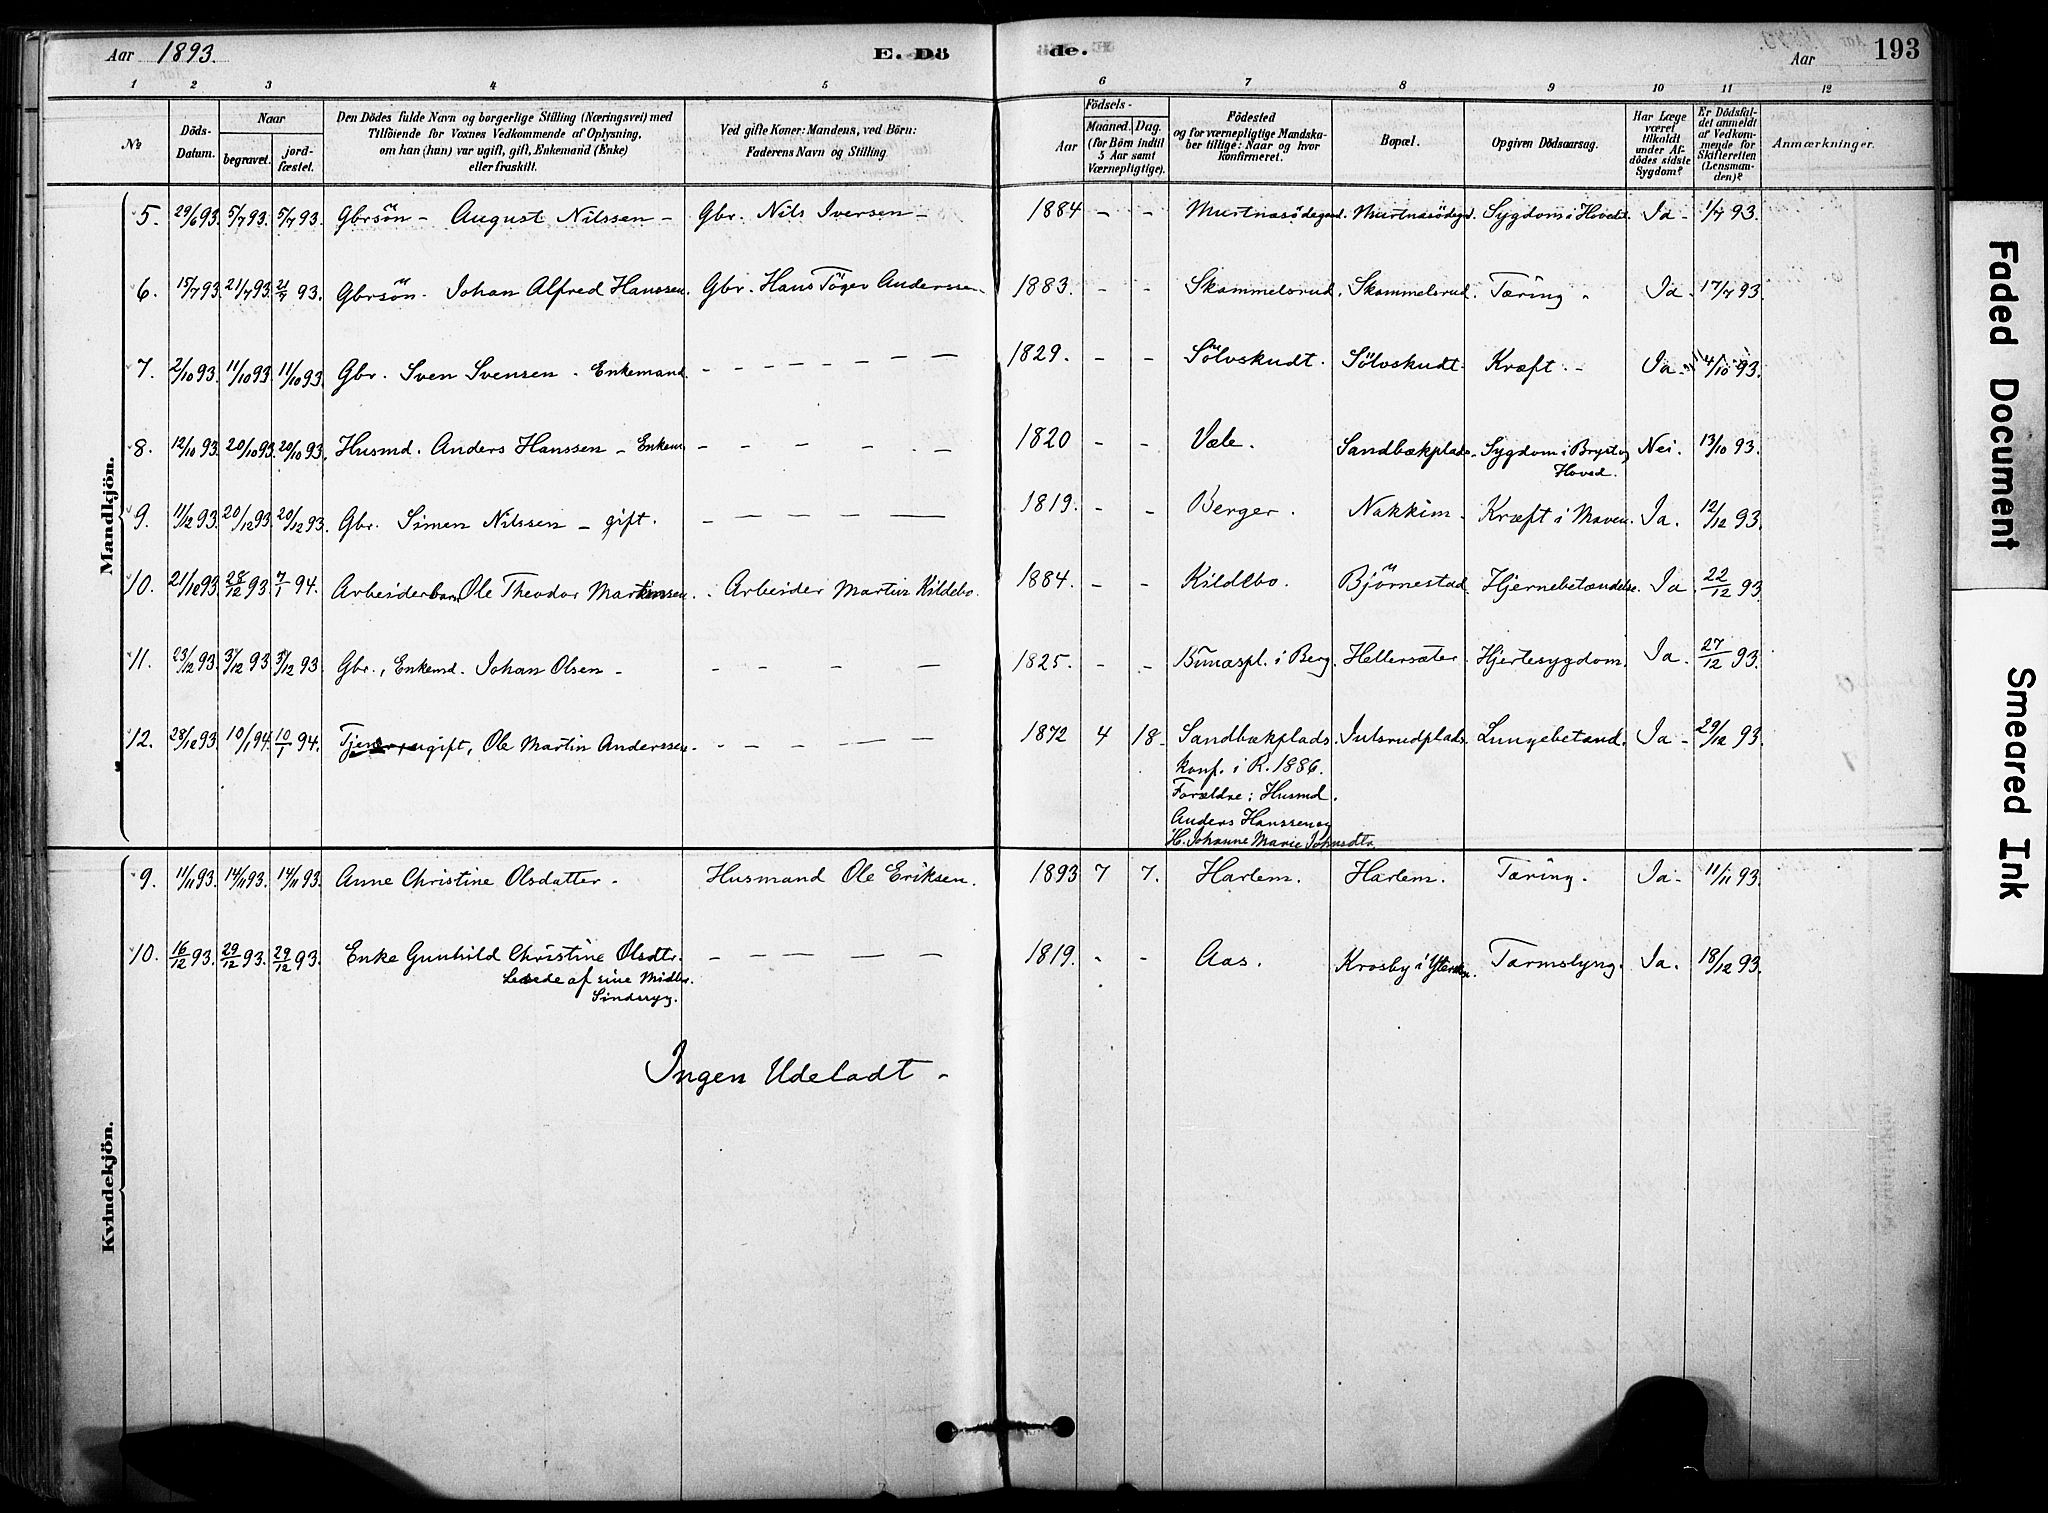 Aar 1893. E. Döde. Aar 193
1 2 3 4 5 6 7 8 9 10 11 12
№ Döds-Datum. Naar begravet. jordfæstet. Den Dödes fulde Navn og borgerlige Stilling (Næringsvei) med Tilföiende for Voxnes Vedkommende af Oplysning, om han (hun) var ugift, gift, Enkemand (Enke) eller fraskilt. Ved gifte Koner: Mandens, ved Börn: Faderens Navn og Stilling. Födsels- Aar Maaned. Dag. (for Börn indtil 5 Aar samt Værnepligtige). Födested og for værnepligtige Mandskaber tillige: Naar og hvor konfirmeret. Bopæl. Opgiven Dödsaarsag. Har Læge været tilkaldt under Afdödes sidste Sygdom? Er Dödsfaldet anmeldt af Vedkommende for Skifteretten (Lensmanden)? Anmærkninger.
Mandkjön.
5. 29/6 93. 5/7 93. 5/7 93. Gbrsön - August Nilssen - Gbr. Nils Iversen - 1884 - - Murtnæsödegd. Murtnæsödegd. Sygdom i Hovedt Ja - 1/7 93.
6. 15/7 93. 21/7 93. 21/7 93. Gbrsön. Johan Alfred Hanssen. Gbr. Hans Töger Anderssen 1883. - - Skammelsrud. Skammelsrud. Tæring. Ja. 17/7 93.
7. 2/10 93. 11/10 93. 11/10 93. Gbr. Sven Svensen. Enkemand. - - - - - - - 1829. - - Sölvskudt. Sölvskudt. Kræft. - Ja - 4/10 93.
8. 12/10 93. 20/10 93. 20/10 93. Husmd. Anders Hanssen - Enkem. - - - - - - 1820 - - Væle. Sandbækplads. Sygdom i Bryst og Nei. 13/10 93.
Hoved.
9. 11/12 93. 20/12 93. 20/12 93. Gbr. Simen Nilssen - gift. - - - - - - 1819. - - Berger. Nakkim. Kræft i Maven. Ja. 12/12 93.
10. 21/12 93. 28/12 93. 7/1 94. Arbeiderbarn, Ole Theodor Martinsen. Arbeider Martin Kildebo. 1884. - - Kildebo. Björnestad. Hjernebetændelse. Ja. 22/12 93.
11. 23/12 93. 31/12 93. 31/12 93. Gbr., Enkemd. Johan Olsen - - - - - - 1825. - - i Berg. Hellersæter. Hjertesygdom. Ja. 27/12 93.
12. 28/12 93. 10/1 94. 10/1 94. Tjener, ugift, Ole Martin Anderssen. - - - - - - 1872 4 18. Sandbækplads. Intsrudplads. Lungebetænd. Ja - 29/12 93.
konf. i R. 1886.
Forældre: Husmd.
Anders Hanssen og
H. Johanne Marie Johnsdtr.
Kvindekjön.
9. 11/11 93. 14/11 93. 14/11 93. Anne Christine Olsdatter. Husmand Ole Eriksen. 1893 7 7. Harlem. Harlem. Tæring. Ja - 11/11 93.
10. 16/12 93. 29/12 93. 29/12 93. Enke Gunhild Christine Olsdtr. - - - - - - 1819. - - Aas. Krosby i Tarmslyng. Ja. 18/12 93.
Levede af sine Midler.
Sindssyg.
Ingen Udeladt -
Faded Document
Smeared Ink